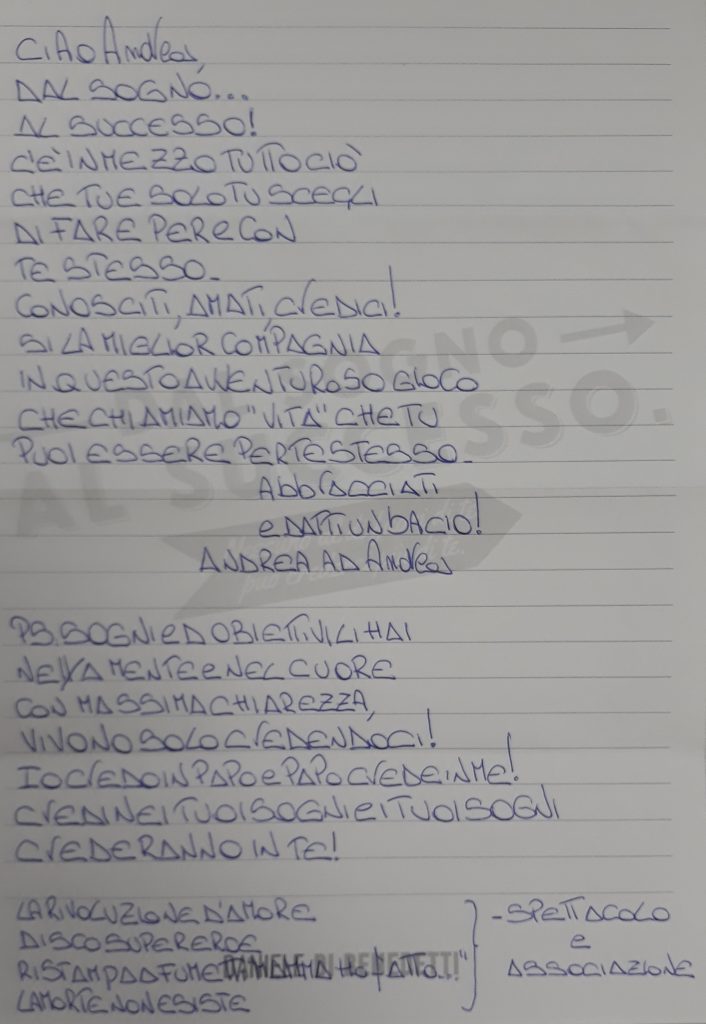 CIAO Andreas,
DAL SOGNO...
AL SUCCESSO!
C'È IN MEZZO TUTTO CIÒ
CHE TU E SOLO TU SCEGLI
DI FARE PER E CON
TE STESSO.
CONOSCITI, AMATI, CREDICI!
SII LA MIGLIOR COMPAGNIA
IN QUESTO AVVENTUROSO GIOCO
CHE CHIAMIAMO "VITA" CHE TU
PUOI ESSERE PER TE STESSO.
Abbracciati
e DATTI UN bACIO!
ANDREA AD Andreas
PS. SOGNI ED OBIETTIVI, LI HAI
NELLA MENTE e NEL CUORE
CON MASSIMA CHIAREZZA,
VIVONO SOLO CREDENDOCI!
IO CREDO IN PAPO e PAPO CREDE IN ME!
CREDI NEI TUOI SOGNI E I TUOI SOGNI
CREDERANNO IN TE!
LA RIVOLUZIONE D'AMORE
DISCO SUPEREROE
RISTAMPA A FUMETTI "MAMMA HO fATTO..."
LA MORTE NON ESISTE
- SPETTACOLO
e
ASSOCIAZIONE
DAL SOGNO
AL SUCCESSO.
DANIELE DI BENEDETTI